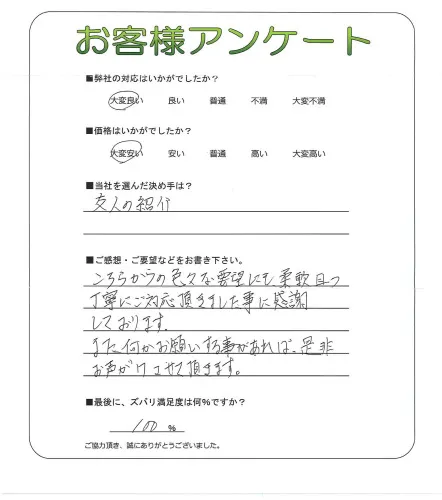 お客様アンケート
■弊社の対応はいかがでしたか？
大変良い 良い 普通 不満 大変不満
■価格はいかがでしたか？
大変安い 安い 普通 高い 大変高い
■当社を選んだ決め手は？
友人の紹介
■ご感想・ご要望などをお書き下さい。
こちらからの色々な要望にも柔軟且つ
丁寧にご対応頂きました事に感謝
しております。
また何かお願いする事があれば、是非
お声がけさせて頂きます。
■最後に、ズバリ満足度は何%ですか？
100 %
ご協力頂き、誠にありがとうございました。